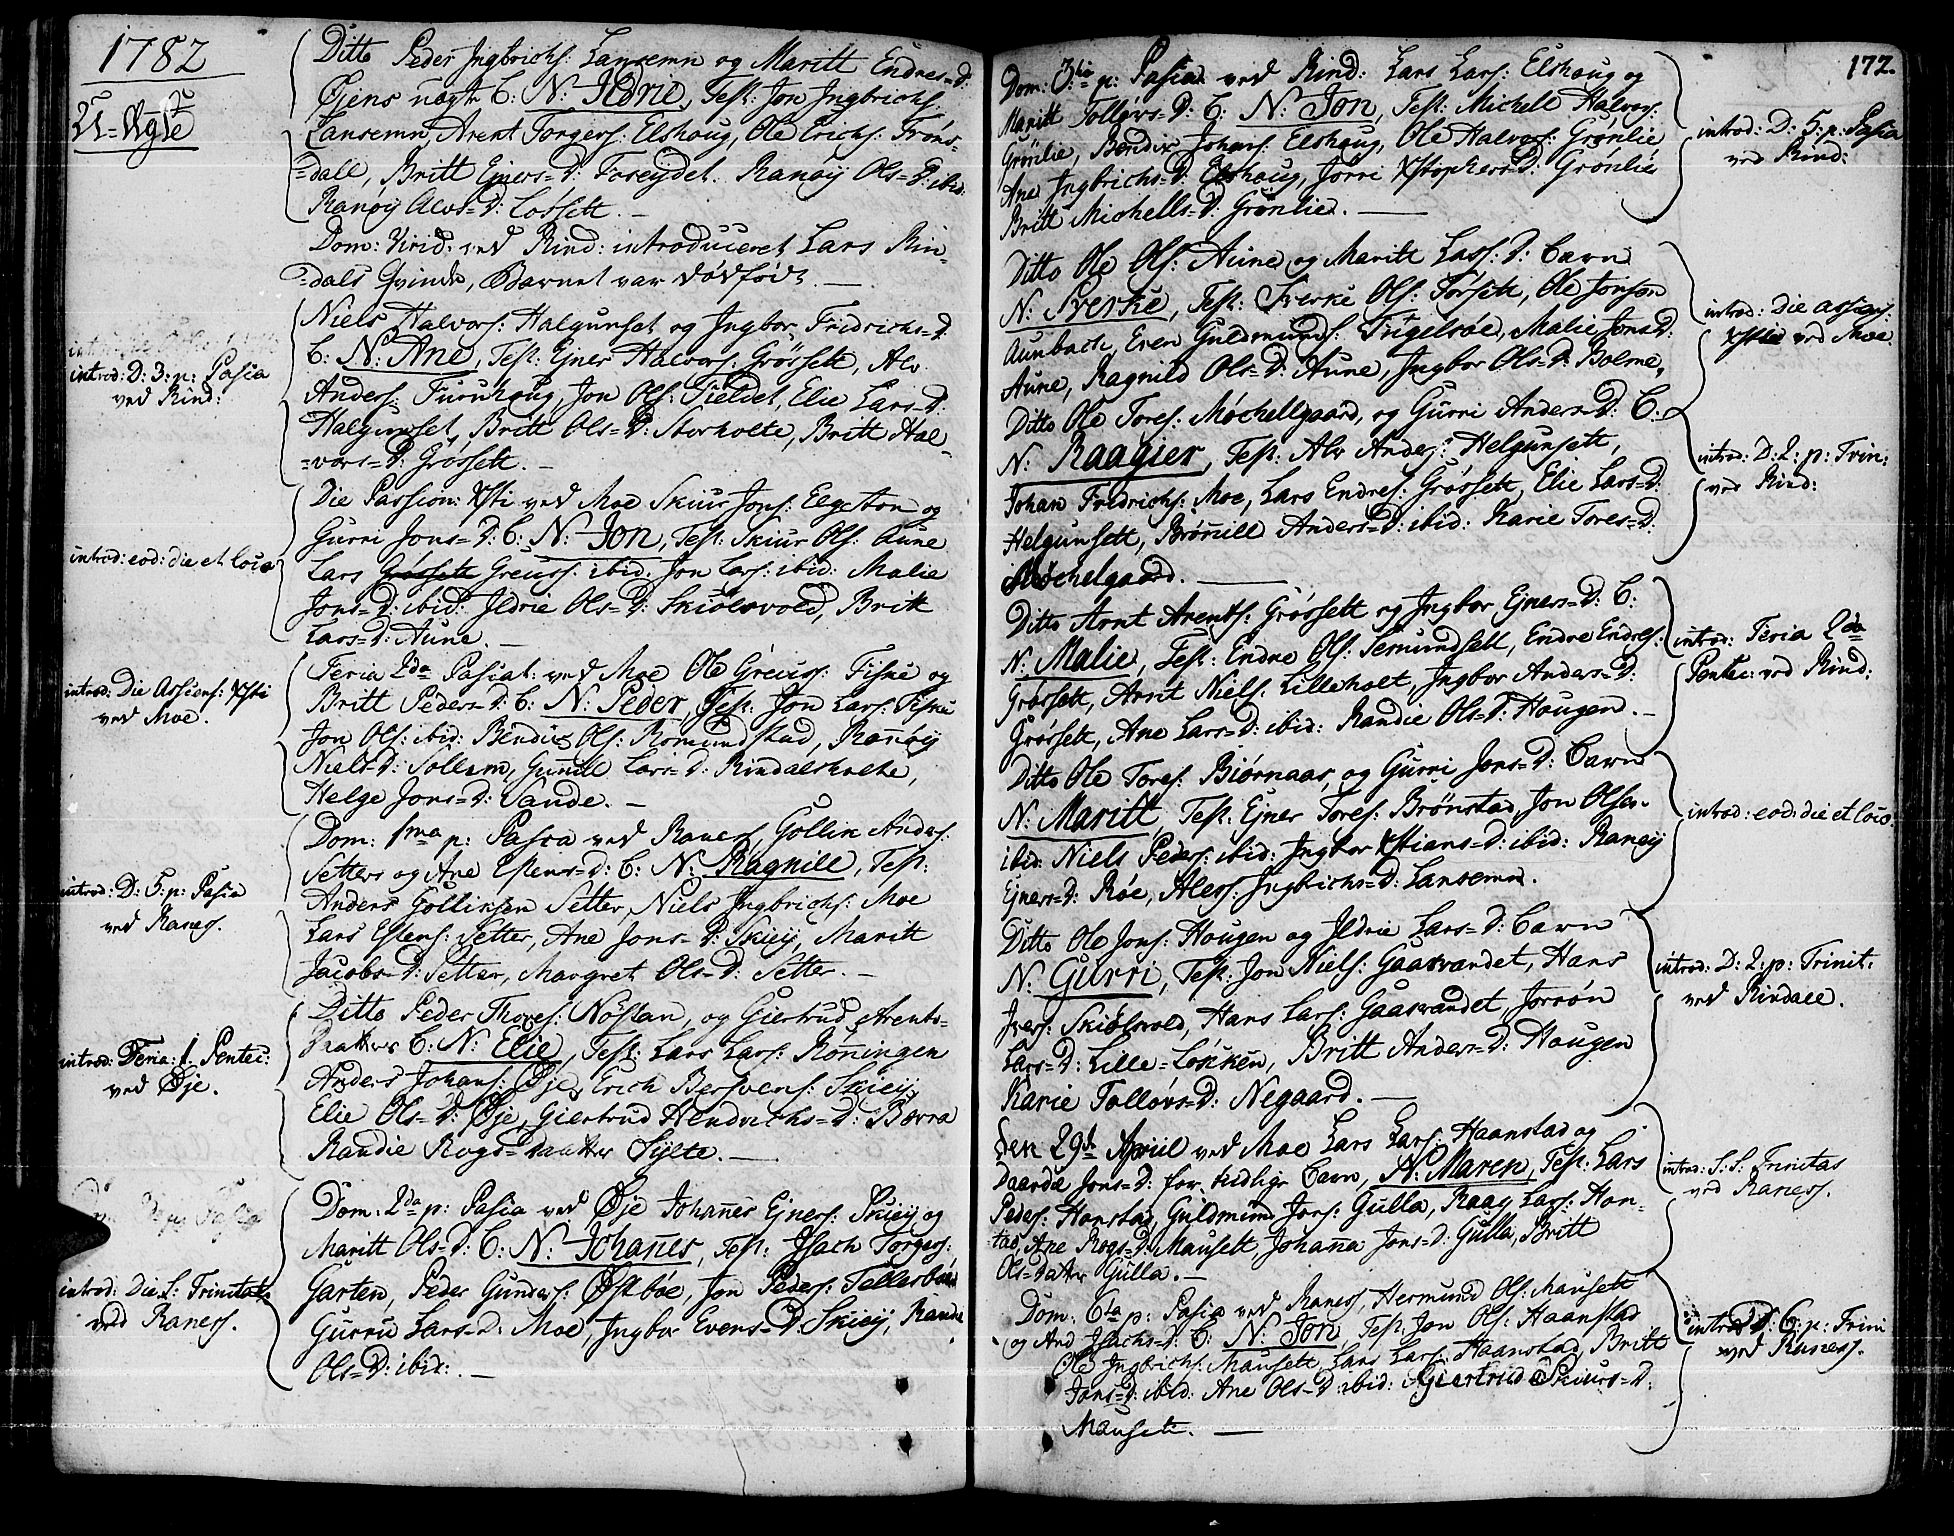 1782
Ditto Peder Jngbrichs: Lansemn og Maritt Endres=D:
Øjens uægte B: N: Jldrie, Test: Jon Jngbrichs:
Lansemn, Arent Torgers: Elshoug, Ole Erichs: Trøns-
=dall, Britt Ejners=D: Foseydet. Ranøy Ols=D: ibid:
Ranøy Alvs=D: Cossett. —
Dom: Virid: ved Rind: introduceret Lars Rin-
=dals Qvinde, Barnet var dødfødt. —
introd: D: 3: p: Pasca
ved Rind:
Niels Halvors: Halgunset og Jngbor Fridrichs=D:
B: N: Ane, Test: Ejner Halvors: Grøssett, Alv
Anders: Furuhoug, Jon Ols: Fieldet, Elie Lars=D:
Halgunset, Britt Ols=D: Storholte, Britt Hal-
=vors=D: Grøssett. —
introd: eod: die et loco
Die Passion: Xsti ved Moe Skiur Jons: Elgeton og
Gurri Jons=D: B: N: Jon, Test: Skiur Ols: Aune
Lars Grøssett Greuss: ibid: Jon Lars: ibid: Malie
Jons=D: ibid: Jldrie Ols=D: Skiølsvold, Britt
Lars=D: Aune. —
introd: Die Assions: Xsti
ved Moe.
Feria 2da Pascat: ved Moe Ole Greuss: Fiske og
Britt Peders=D: B: N: Peder, Test: Jon Lars: Fiske
Jon Ols: ibid: Bendix Ols: Romundstad, Ranøy
Niels=D: Sollem, Gunill Lars=D: Rindalsholte,
Helge Jons=D: Sande. —
introd: D: 5: p: Pasca
ved Ranes.
Dom: 1ma p: Pasca ved Ranes, Gollik Anders:
Setters og Ane Estens=D: B: N: Ragnill, Test:
Anders Golliksen Setter, Niels Jngbrichs: Moe
Lars Estens: Setter, Ane Jons=D: Skiey, Maritt
Jacobs=D: Setter, Margret Ols=D: Setter. —
introd: Feria: 1 Pentec:
ved Øje.
Ditto Peder Thores: Nøstan, og Giertrud Arents-
Daatter B: N: Elie, Test: Lars Lars: Røningen
Anders Johans: Øje, Erich Bersvens: Skiey,
Elie Ols=D: Øje, Giertrud Hendrichs=D: Børra
Randie Rogs=daatter Sylte. —
introd: Die S: Trinitat:
ved Raness.
Dom: 2da p: Pasca ved Øje Johanes Ejners: Skiey og
Maritt Ols=D: B: N: Johanes, Test: Jsach Torgers:
Garten, Peder Gunders: Østbøe, Jon Peders: Tellesbøe
Gurru Lars=D: Moe, Jngbor Evens=D: Skiey, Rande
Ols=D: ibid: —
172.
Dom: 3tia p: Pasca ved Rind: Lars Lars: Elshoug og
Maritt Tolløvs=D: B: N: Jon, Test: Michell Halvors:
Grønlie, Bendix Johans: Elshoug, Ole Halvors: Grønlie
Ane Jngbrichs=D: Elshoug, Jørri Xstophers=D: Grønlie
Britt Michells=D: Grønlie. —
introd: D: 5: p: Pasca
ved Rind:
Ditto Ole Ols: Aune og Maritt Lass: D: Barn
N: Sverke, Test: Sverke Ols: Tørsett, Ole Jonson
Aunbach, Even Guldmunds: Tügelsøe, Malie Jons D:
Aune, Ragnild Ols=D: Aune, Jngbor Ols=D: Bolme,
introd: Die Assions:
Xstie ved Moe.
Ditto Ole Tores: Møchellgaard, og Gurri Anders=D: B:
N: Raagier, Test: Alv Anders: Helgunsett,
Johan Fredrichs: Moe, Lars Endres: Grøssett, Elie Lars=D:
Helgunsett, Brønill Anders=D: ibid: Karie Tores=D:
Møchelgaard. —
introd: D: 2: p: Trin:
ved Rind:
Ditto Arnt Arents: Grøssett og Jngbor Ejners=D: B:
N: Malie, Test: Endre Ols: Semundsett, Endre Endres:
Grøssett, Arnt Niels: Lilleholt, Jngbor Anders=D:
Grøssett, Ane Lars=D: ibid: Randie Ols=D: Hougen. —
introd: Feria 2da
Pentec: ved Rind:
Ditto Ole Tores: Biørnaas, og Gurri Jons=D: Barn
N: Maritt, Test: Ejner Tores: Brønstad, Jon Olsen
ibid: Niels Peders: ibid: Jngbor Xstians=D: ibid: Ranøy
Ejners=D: Røe, Aless: Jngbrichs=D: Lansemn.
introd: eod: die et loco.
Ditto Ole Jons: Hougen og Jldrie Lars=D: Barn
N: Gurri, Test: Jon Niels: Gaasvandet, Hans
Jvers: Skiølsvold, Hans Lars: Gaasvandet, Jorrøn
Lars=D: Lille=Løsiken, Britt Anders=D: Hougen
Karie Tolløvs=D: Negaard. —
introd: D: 2: p: Trinit:
ved Rindall.
Den 29de April ved Moe Lars Lars: Haanstad og
Daardie Jons=D: før tidlige Barn, N: Maren, Test: Lars
Peders: Honstad, Guldmund Jons: Gulla, Raag Lars: Hon-
tad, Ane Rogs=D: Mausett, Johana Jons=D: Gulla, Britt
Ols=datter Gulla. —
introd: S: S: Trinitas
ved Raness.
Dom: 6ta p: Pasca ved Raness, Hermund Ols: Mausett
og And Jsachs=D: B: N: Jon, Test: Jon Ols: Haanstad
Ole Jngbrichs: Mausett, Lars Lars: Haanstad, Britt
Jons=D: ibid: Ane Ols=D: ibid: Giertrud Skiurs=D:
Mausett. —
introd D: 6: p: Trini
ved Raness.